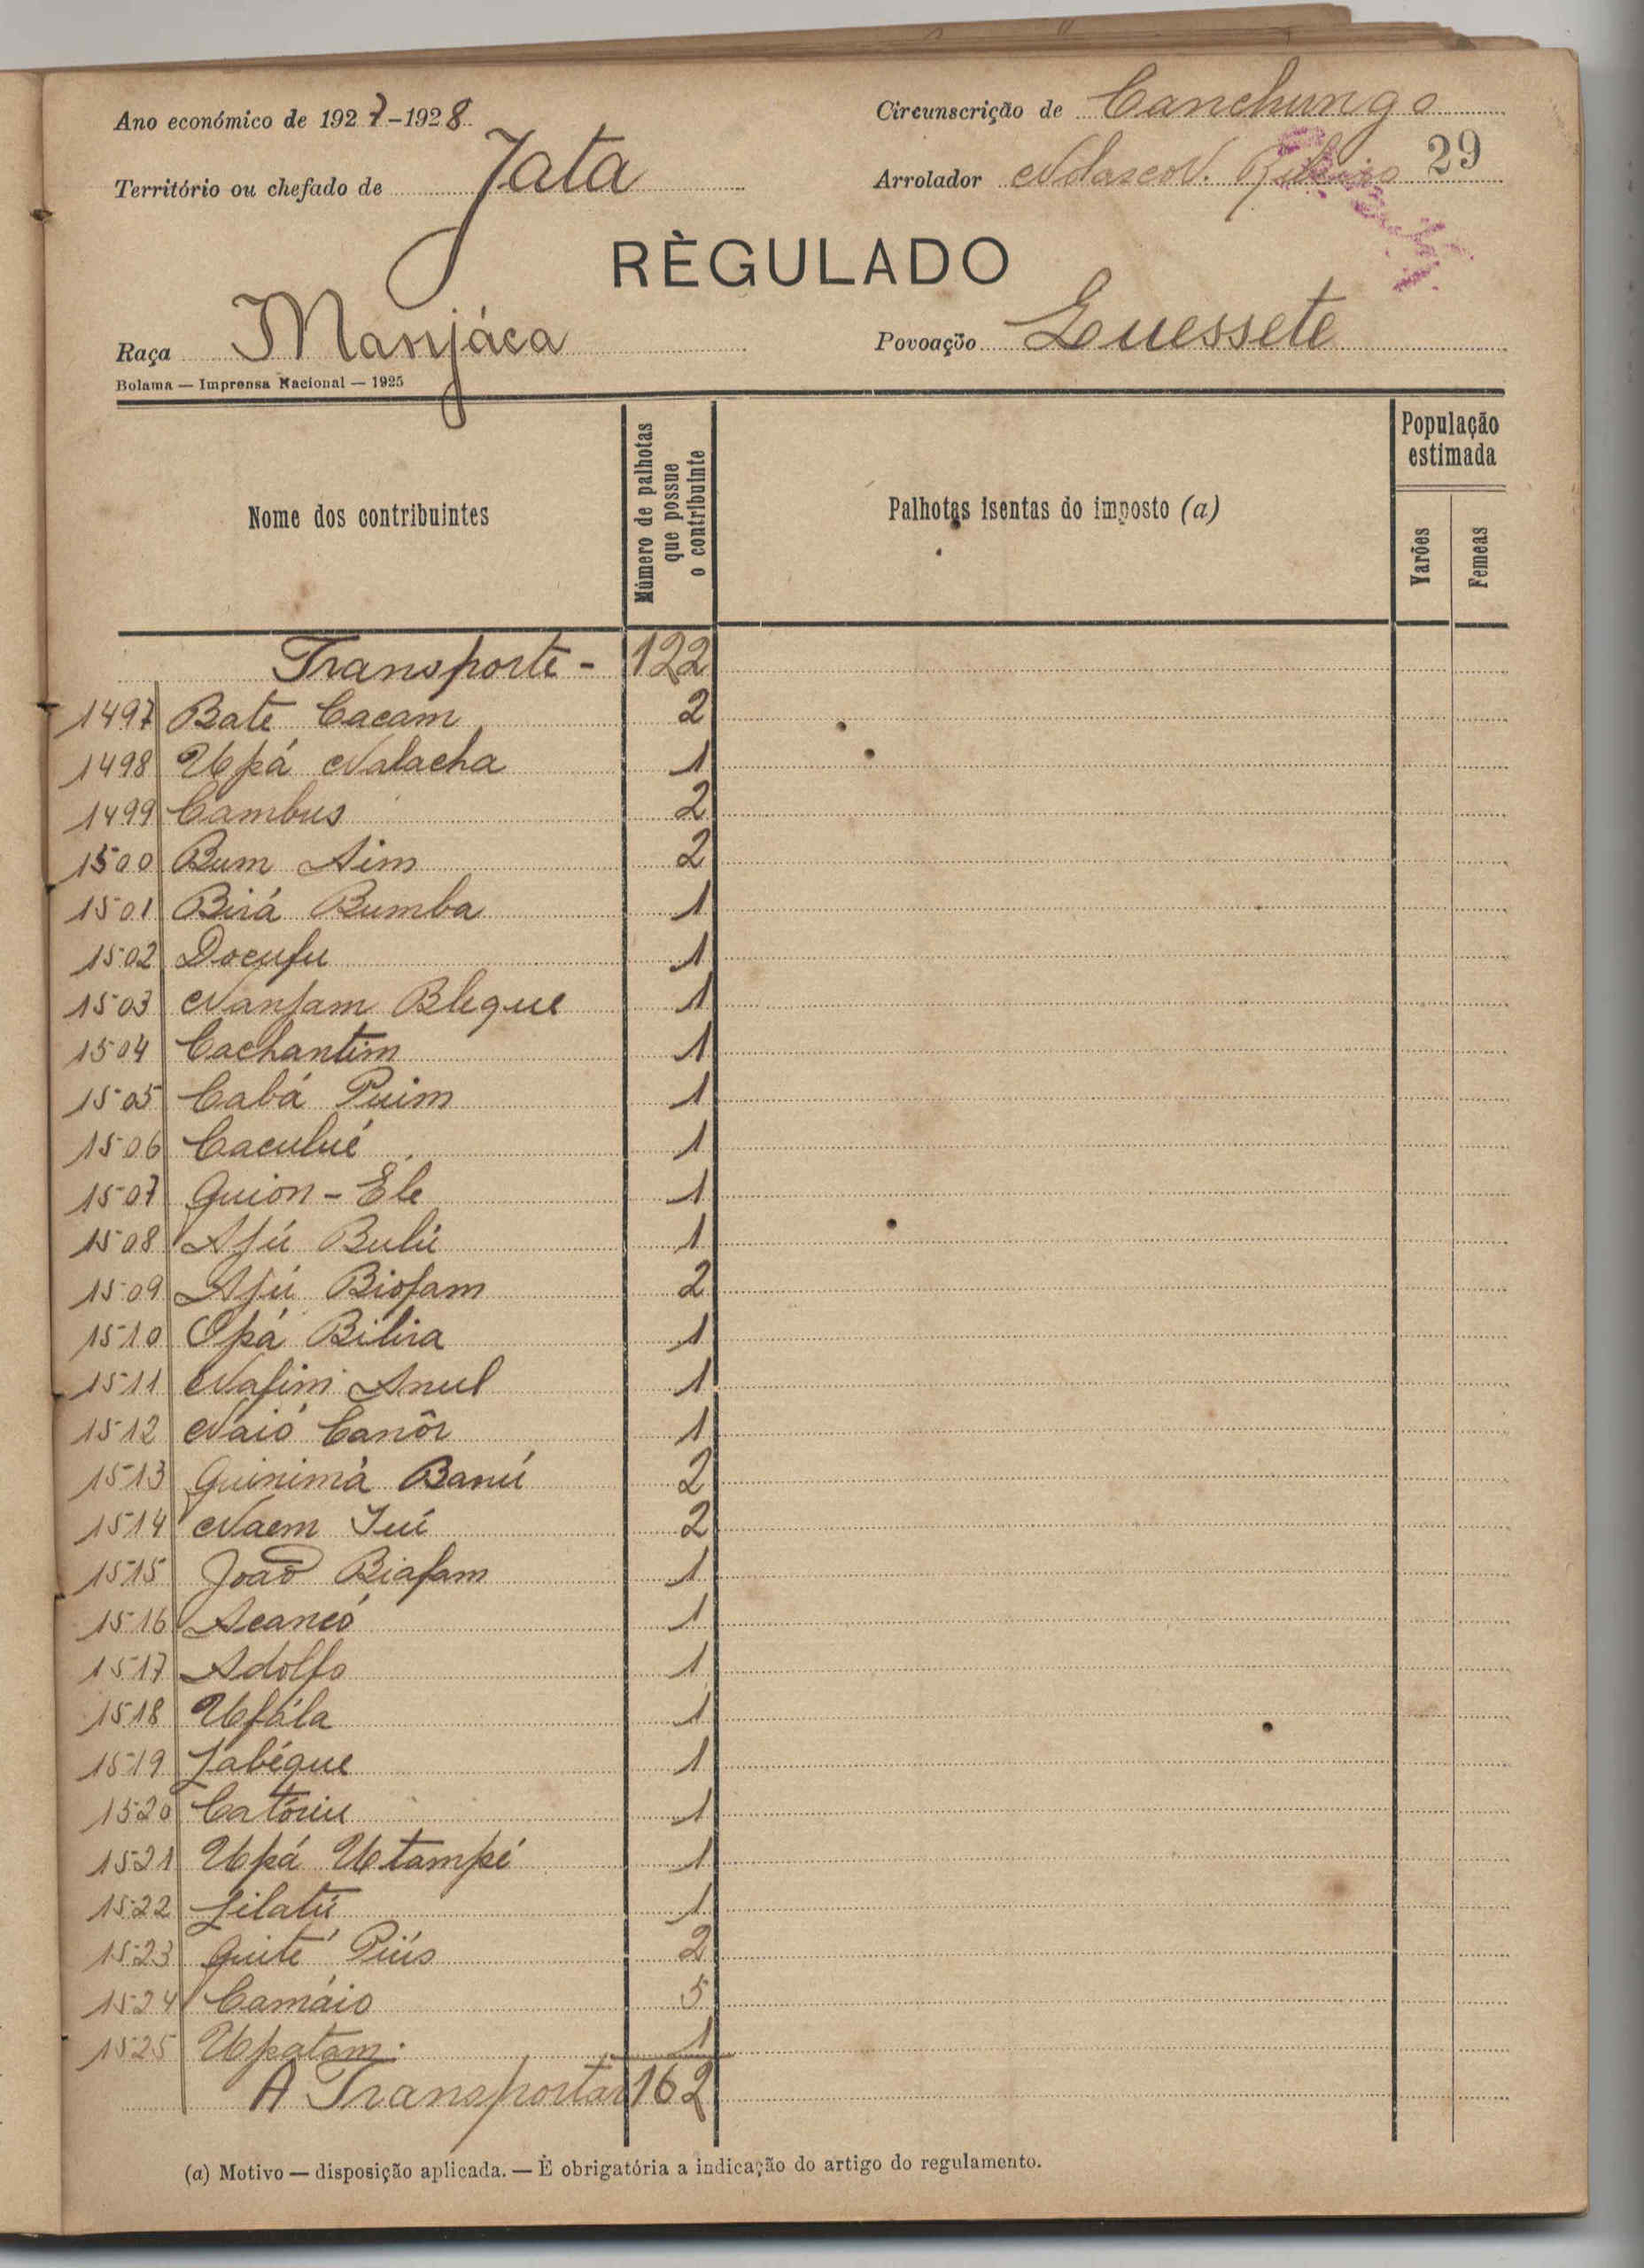 Ano económico de 1927-1928
Circunscrição de Canchungo
Território ou chefado de Jata
Arrolador 29
RÈGULADO
Raça Manjáca
Povoação
Bolama — Imprensa Nacional — 1925
Nome dos contribuintes
Número de palhotas que possue o contribuinte
Palhotas isentas do imposto (a)
População estimada
Varões
Femeas
Transporte - 122
1497 Bate Cacam 2
1498 Upá Nalacha 1
1499 Cambus 2
1500 Bum Aim 2
1501 Birá Bumba 1
1502 Docufu 1
1503 Nanfam Bleque 1
1504 Cachantim 1
1505 Cabá Puim 1
1506 Caculué 1
1507 Quion - Ele 1
1508 Afú Bulú 1
1509 Afú Biofam 2
1510 Opá Bilira 1
1511 Nafim Anul 1
1512 Náió Canôr 1
1513 Quinimá Banú 2
1514 Naem 2
1515 João Biafam 1
1516 Acancó 1
1517 Adolfo 1
1518 Ufála 1
1519 Jabéque 1
1520 1
1521 Upá Utampé 1
1522 Jilatú 1
1523 Quité 2
1524 Camáio 5
1525 Upatam 1
A Transportar 162
(a) Motivo — disposição aplicada. — È obrigatória a indicação do artigo do regulamento.